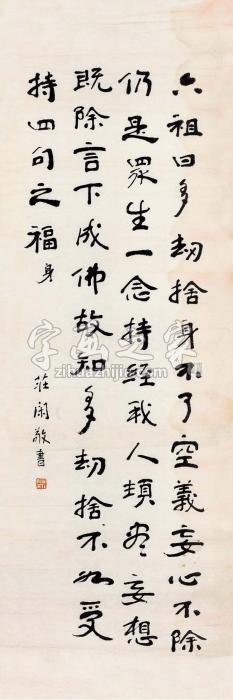 六祖曰多劫捨身不了空義妄心不除
仍是眾生一念持經我人頓盡妄想
既除言下成佛故知多劫捨不如受
持四句之福
身
莊閑敬書
字画之家
zihuazhijia.com